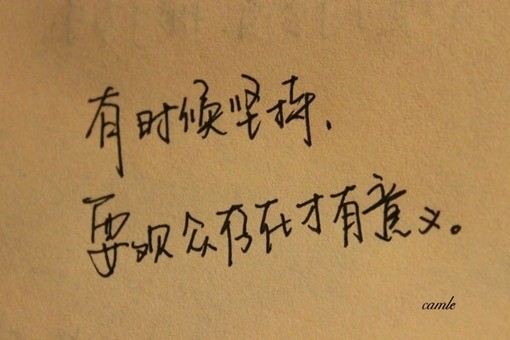 有时候坚持.
要观众存在才有意义。
camle